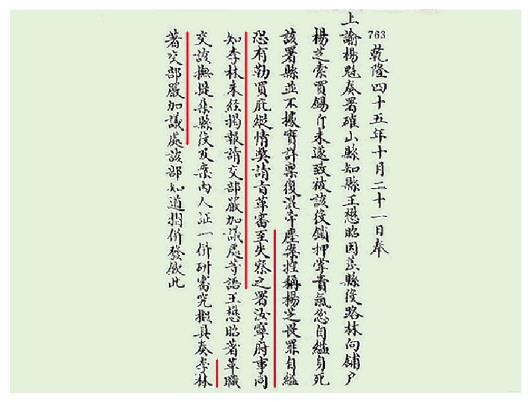 763 乾隆四十五年十月二十一日奉
上諭楊魁奏署確山縣知縣王懋昭因差縣役路林向舖戶
楊芝索買錫斤未遂致被該役鎖押掌責氣忿自縊身死
該署縣並不據實詳稟復混牽塵案捏稱楊芝畏罪自縊
恐有勒買庇縱情弊請旨革審至失察之署汝寧府事同
知李林未經揭報請交部嚴加議處等語王懋昭著革職
交該撫提集縣役及案內人証一併研審究擬具奏李林
著交部嚴加議處該部知道摺併發欽此